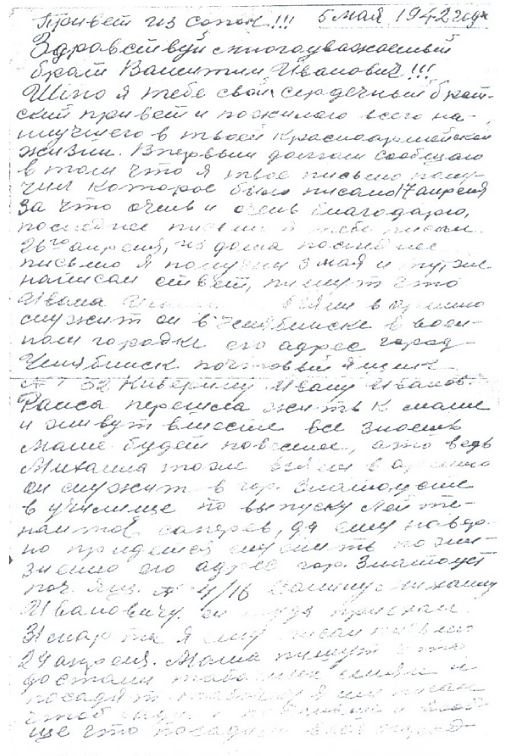 Привет из 5 мая 1942 года
Здравствуй многоуважаемый
брат Валентин Иванович!!!
Шлю я тебе свой сердечный брат-
ский привет и пожелаю всего на-
илучшего в твоей красноармейской
жизни. Впервым долгом сообщаю
в том что я твое письмо полу-
чил которое было писано 17 апреля
за что очень и очень благодарю,
последнее письмо я тебе писал
26го апреля, из дома последнее
письмо я получил 3 мая и
написал ответ, пишут что
Ивана взяли в армию
служит он в Челябинске в воен-
ном городке его адрес город
Челябинск почтовый ящик
№ Ивану Иванов.
Раиса перешла жить к маме
и живут вместе все
маме будет повеселее, а то ведь
Михаила тоже взяли в армию
он служит в гор. Златоусте
в училище по выпуску лейте-
нантов саперов, да ему
но придется служить
его адрес гор. Златоуст
поч. ящ. № 4/16 Михаилу
Ивановичу он туда приехал
31 марта я ему писал письмо
24 апреля. Мама пишут что
достали семян и
посадят я им писал
чтоб
еще что посадили